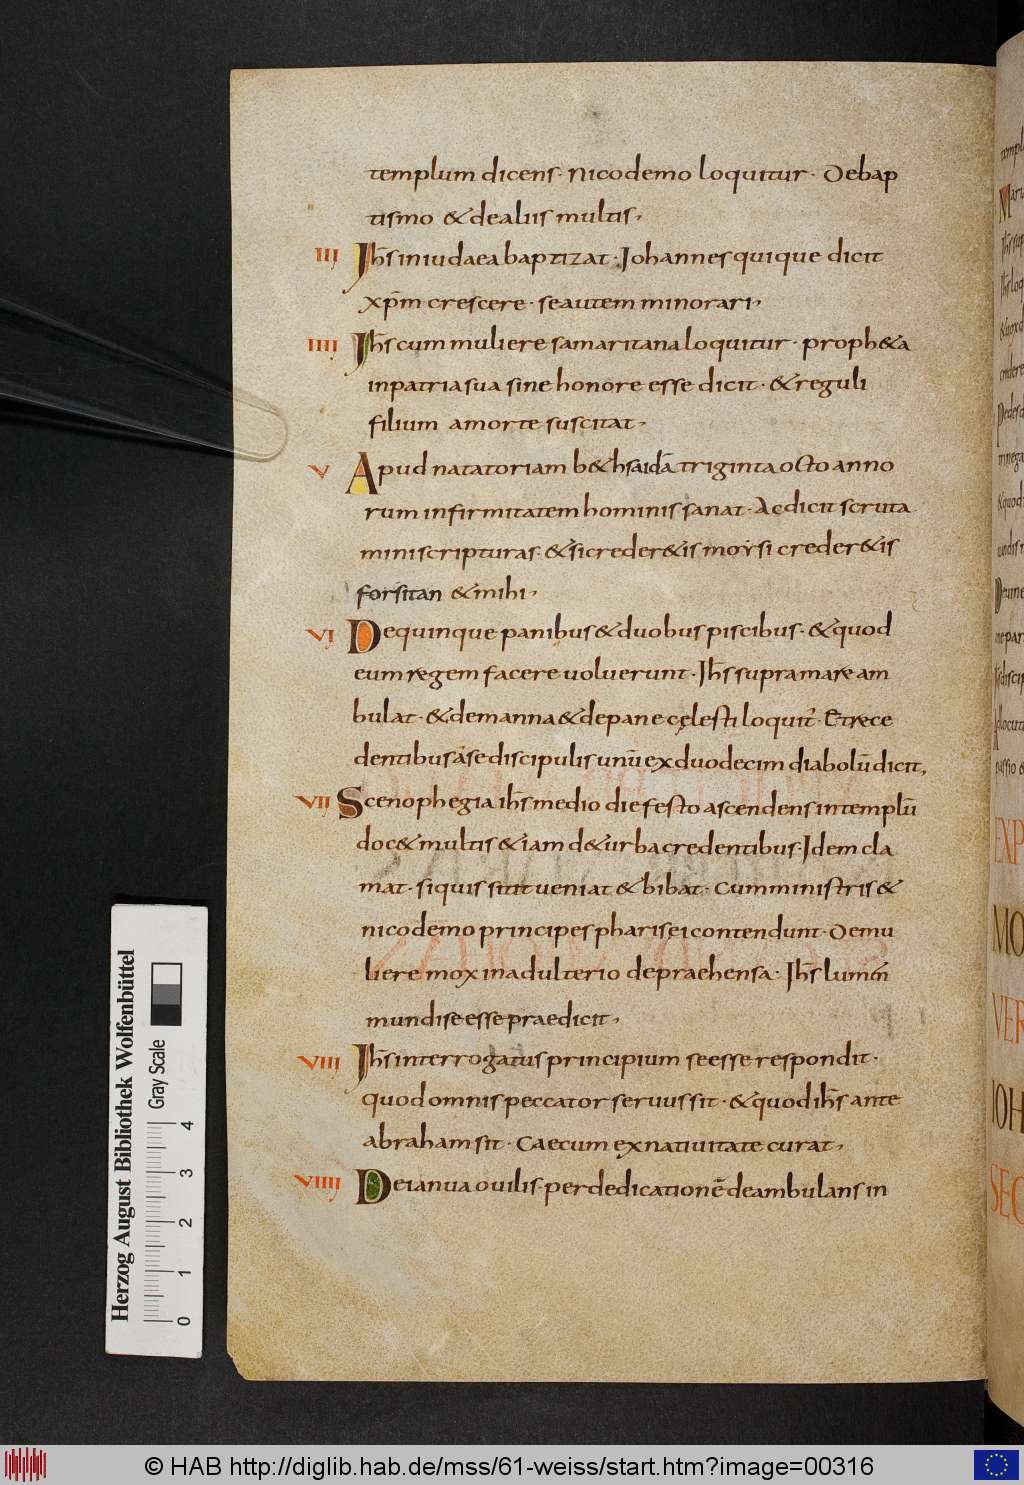 templum dicens· Nicodemo loquitur· Debap
tismo &dealiis multis,
III Jhs̄ iniudaea baptizat· Johannes quique dicit
xpm̄ crescere· seautem minorari,
IIII Jhs̄ cum muliere samaritana loquitur· proph&a
inpatria sua sine honore esse dicit· &reguli
filium amorte suscitat,
V Apud natatoriam b&hsaidā triginta octo anno
rum infirmitatem hominis sanat· Acdicit scruta
mini scripturas· &sicreder&is moysi creder&is
forsitan &mihi,
VI Dequinque panibus &duobus piscibus· &quod
eum regem facere uoluerunt· Jhs̄ supra mare am
bulat· &demanna &depane cęlesti loquit̄· Etrece
dentibus áse discipulis unū ex duodecim diabolū dicit,
VII Scenophegia ihs̄ medio die festo ascendens in templū
doc& multis &iam d&urba credentibus· Idem cla
mat· siquis sitit ueniat &bibat· Cumministris &
nicodemo principes pharisei contendunt· Demu
liere mox inadulterio depraehensa· Jhs̄ lumen
mundi se esse praedicit,
VIII Jhs̄ interrogatus principium se esse respondit·
quod omnis peccator seruus sit· &quod ihs̄ ante
abraham sit· Caecum ex natiuitate curat,
VIIII Deianua ouilis· per dedicationē deambulans in
Herzog August Bibliothek Wolfenbüttel
Gray Scale
0 1 2 3 4
© HAB http://diglib.hab.de/mss/61-weiss/start.htm?image=00316